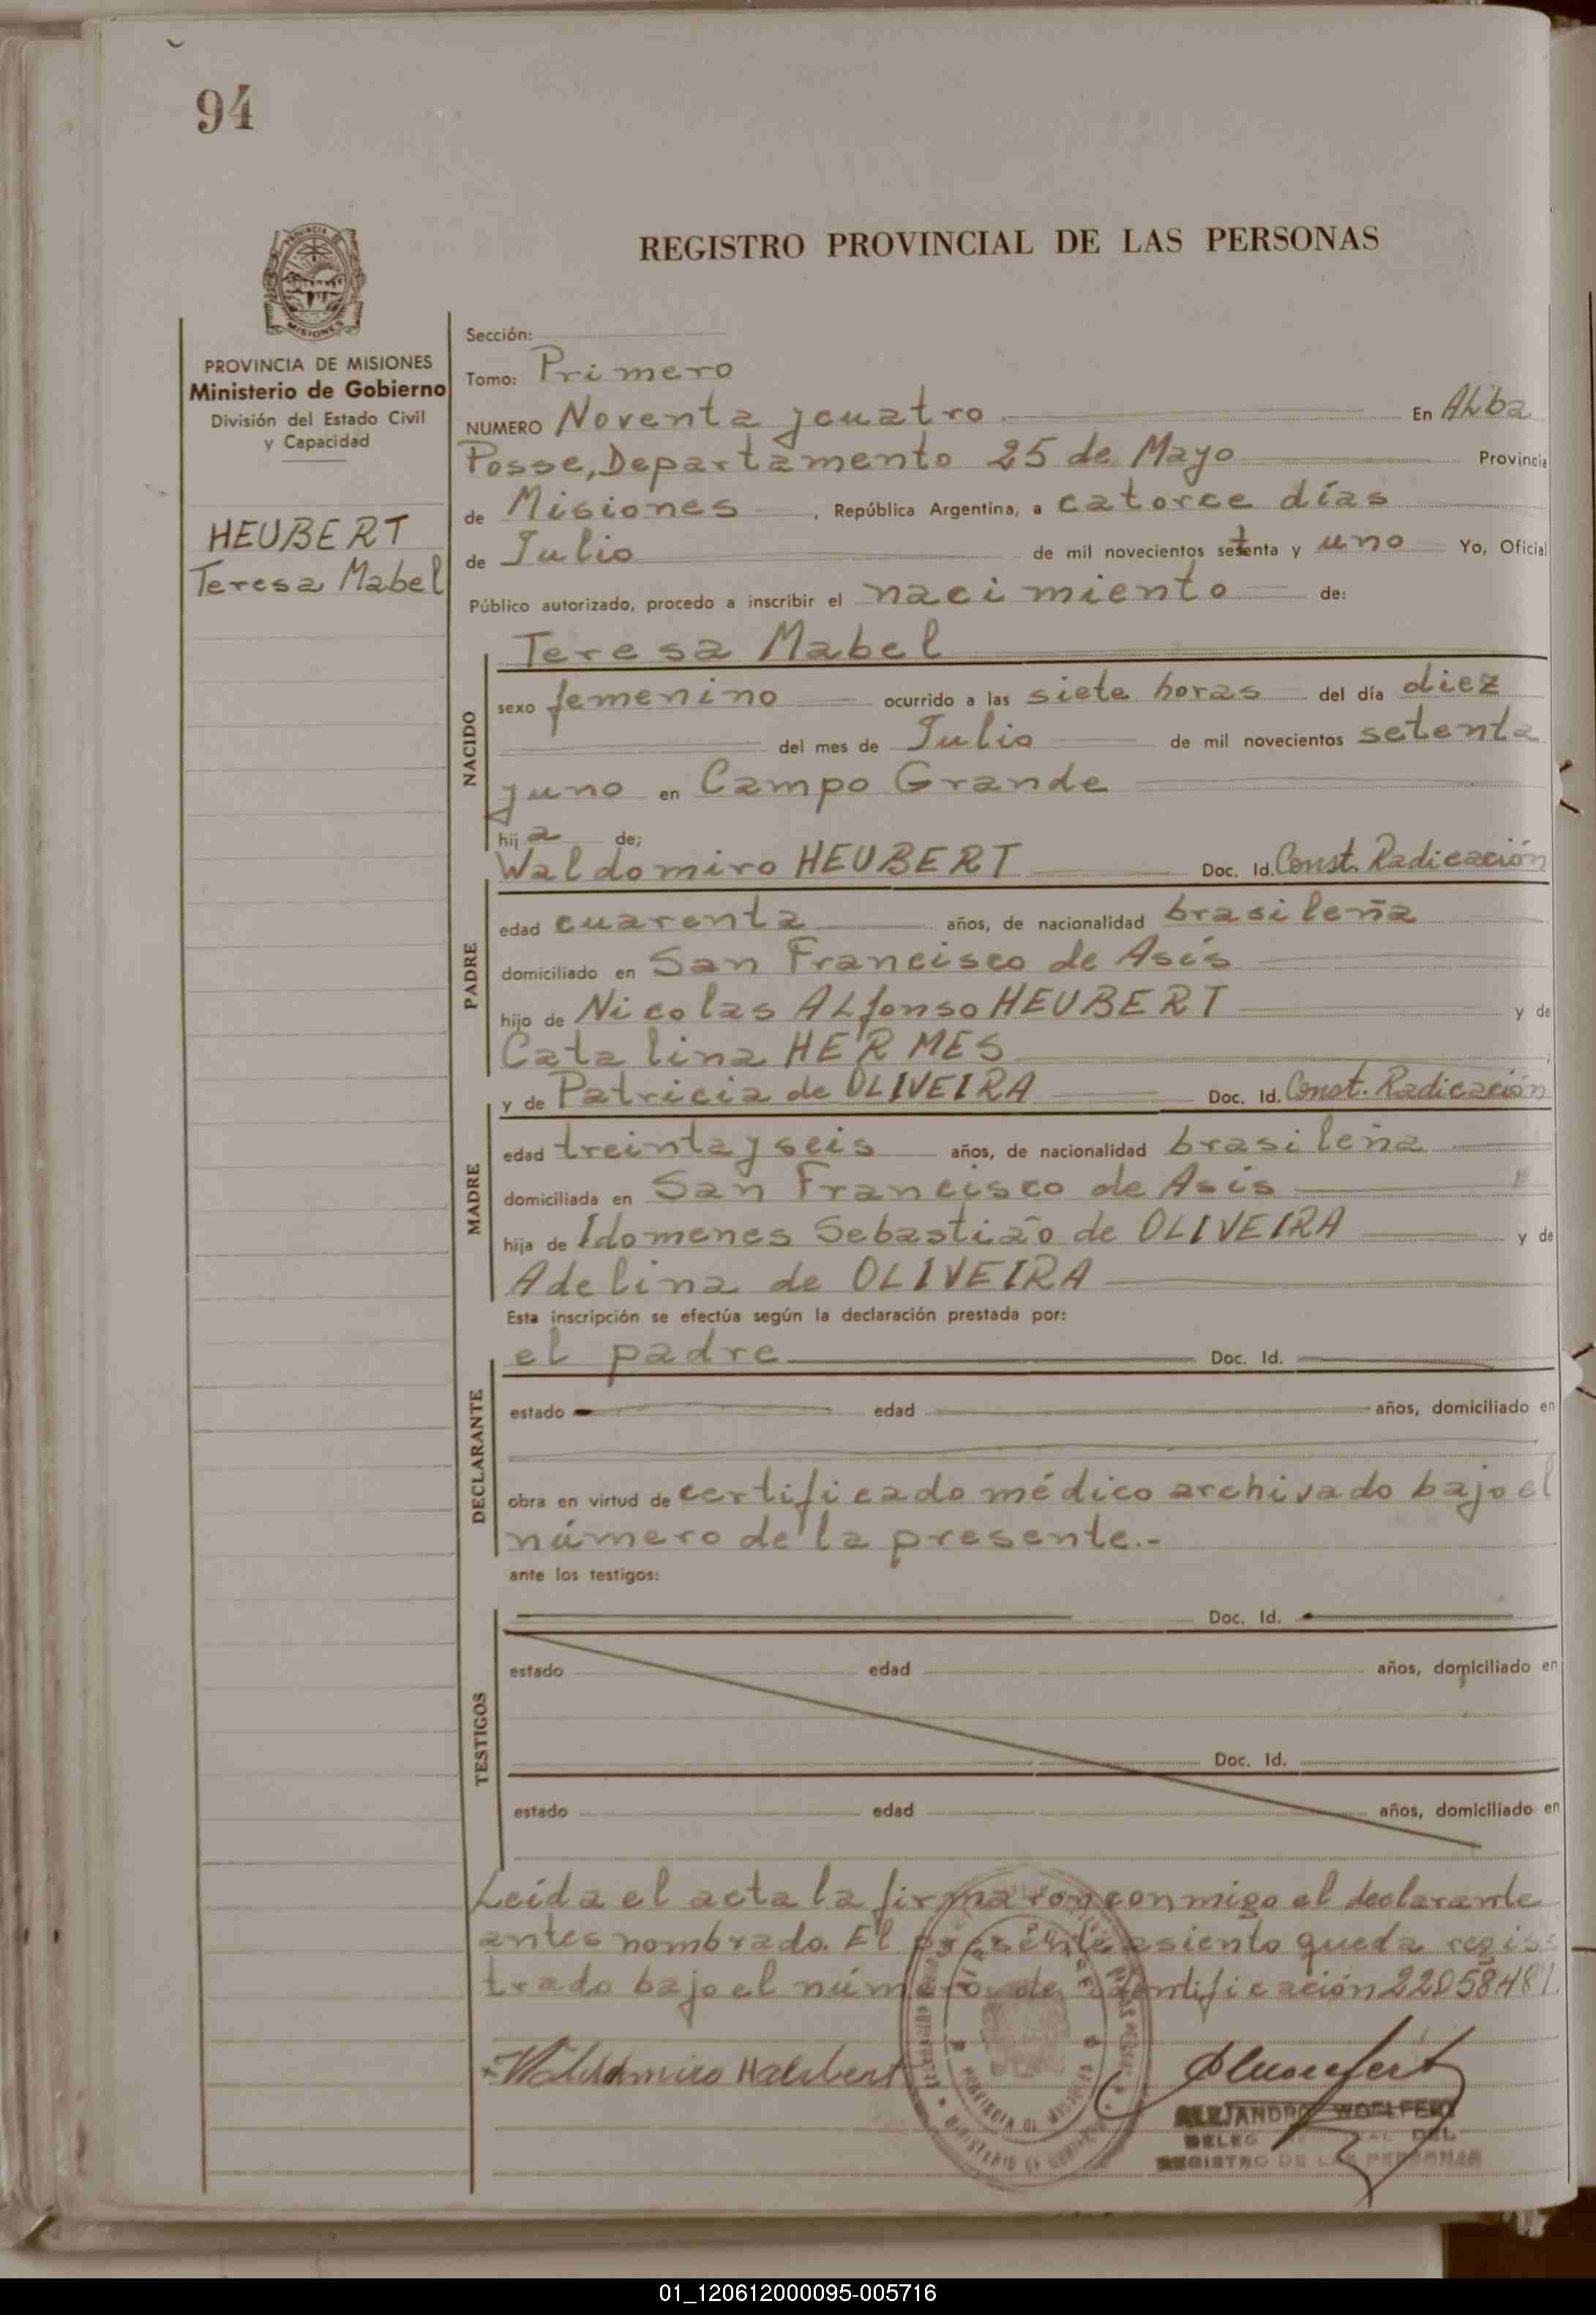 94
PROVINCIA DE MISIONES
Ministerio de Gobierno
División del Estado Civil
y Capacidad
HEUBERT
Teresa Mabel
REGISTRO PROVINCIAL DE LAS PERSONAS
Sección:
Tomo: Primero
NUMERO Noventa y cuatro En Alba
Posse, Departamento 25 de Mayo Provincia
de Misiones, República Argentina, a catorce días
de Julio de mil novecientos setenta y uno Yo, Oficial
Público autorizado, procedo a inscribir el nacimiento de:
Teresa Mabel
NACIDO
sexo femenino ocurrido a las siete horas del día diez
del mes de Julio de mil novecientos setenta
y uno en Campo Grande
hija de;
Waldomiro HEUBERT Doc. Id. Const. Radicación
PADRE
edad cuarenta años, de nacionalidad brasileña
domiciliado en San Francisco de Asís
hijo de Nicolas ALfonso HEUBERT y de
Catalina HERMES
y de Patricia de OLIVEIRA Doc. Id. Const. Radicación
MADRE
edad treinta y seis años, de nacionalidad brasileña
domiciliada en San Francisco de Asís
hija de Idomenes Sebastião de OLIVEIRA y de
Adelina de OLIVEIRA
Esta inscripción se efectúa según la declaración prestada por:
el padre Doc. Id.
DECLARANTE
estado edad años, domiciliado en
obra en virtud de certificado médico archivado bajo el
número de la presente.-
ante los testigos:
Doc. Id.
TESTIGOS
estado edad años, domiciliado en
Doc. Id.
estado edad años, domiciliado en
Leída el acta la firma con conmigo el declarante
antes nombrado. El presente asiento queda regis-
trado bajo el número de identificación 22058481.
ALEJANDRO WOELFERT
DEL
REGISTRO DE LAS PERSONAS
01_120612000095-005716